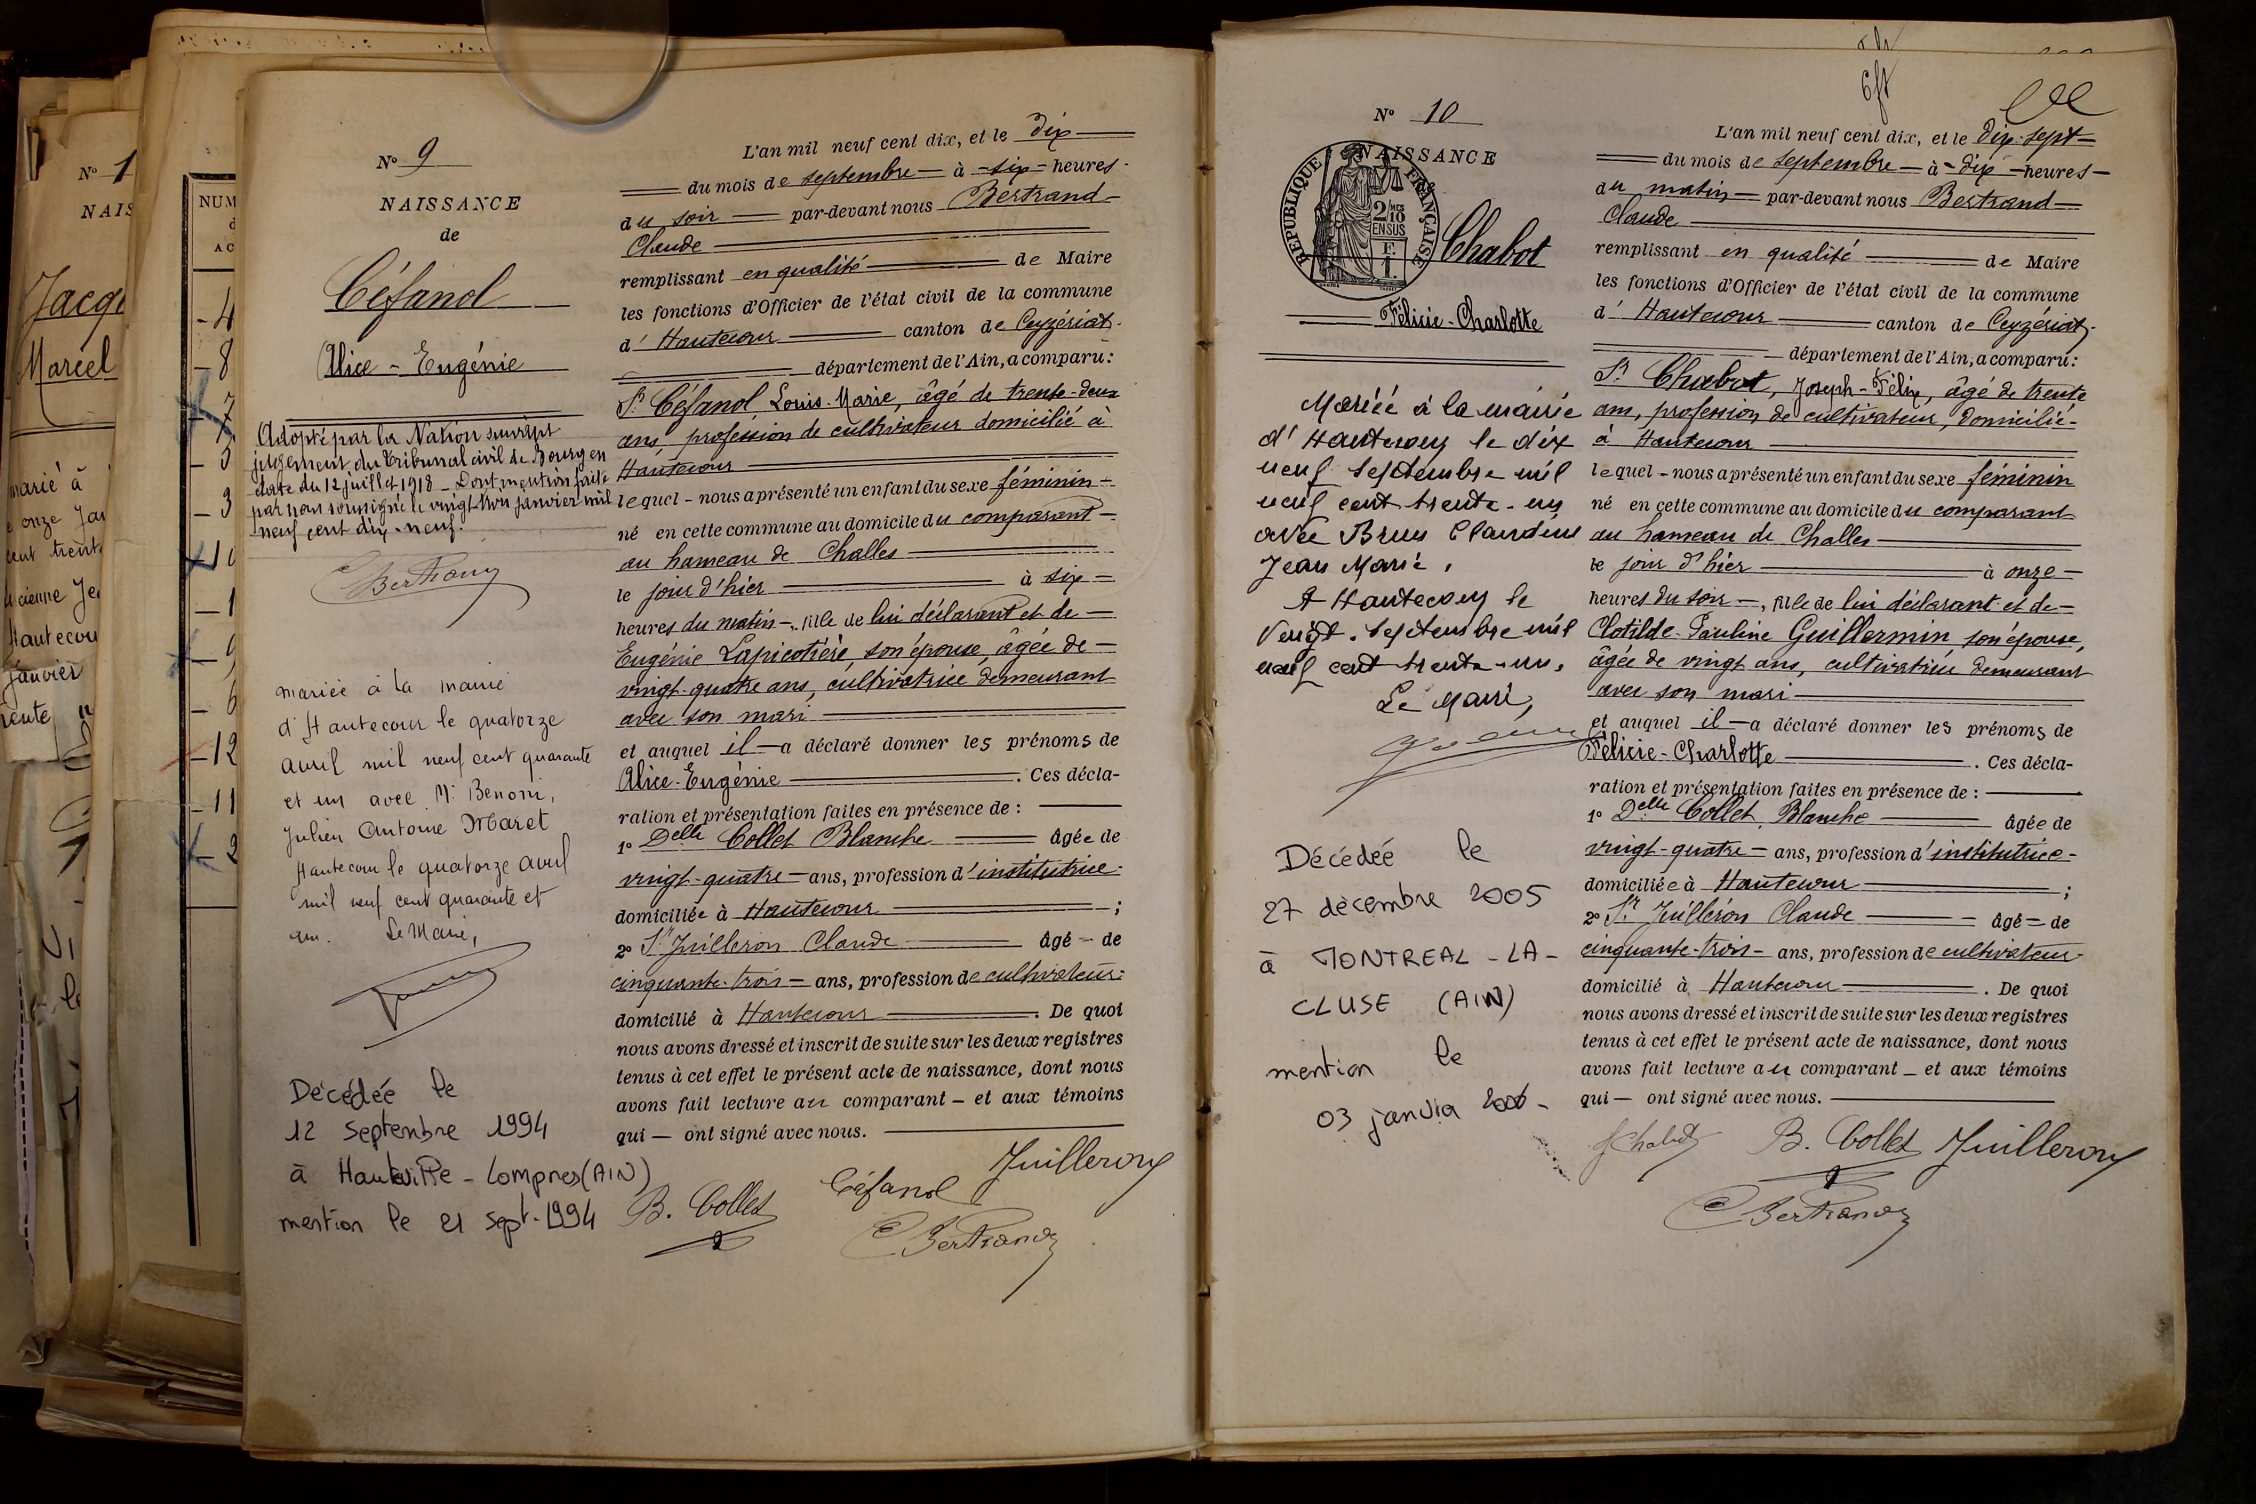 Nº 1
NAIS
Jacq
Marcel
marié à
e onze Jan
cent trent
ucienne Je
Hautecou
janvier
rente
NUM
d
AC
- 4
- 8
- 7
- 5
- 3
- 1
- 9
- 6
- 12
- 11
- 2
Nº 9
NAISSANCE
de
Céfanol
Alice - Eugénie
Adopté par la Nation suivant
jugement du Tribunal civil de Bourg en
date du 12 juillet 1918 _ Dont mention faite
par nous soussigné le vingt trois janvier mil
neuf cent dix-neuf.
C Bertrand
mariée à la mairie
d'Hautecour le quatorze
avril mil neuf cent quarante
et un avec Mr Benoni,
Julien Antoine Maret
Hautecour le quatorze avril
mil neuf cent quarante et
un. Le Maire,
Décédée le
12 Septembre 1994
à Hauteville - Lompnes (AIN)
mention le 21 sept. 1994
L'an mil neuf cent dix, et le dix
du mois de septembre — à - six - heures -
du soir — par-devant nous Bertrand -
Claude
remplissant en qualité — de Maire
les fonctions d'Officier de l'état civil de la commune
d' Hautecour — canton de Ceyzériat.
— département de l'Ain, a comparu :
Sr Céfanol, Louis-Marie, âgé de trente-deux
ans profession de cultivateur domicilié à
Hautecour
lequel - nous a présenté un enfant du sexe féminin -
né en cette commune au domicile du comparant -
au hameau de Challes
le jour d'hier — à six -
heures du matin -, fille de lui déclarant et de -
Eugénie Lapicotière, son épouse, âgée de -
vingt-quatre ans, cultivatrice demeurant
avec son mari
et auquel il — a déclaré donner les prénoms de
Alice-Eugénie — . Ces décla-
ration et présentation faites en présence de :
1º Delle Collet Blanche — âgée de
vingt-quatre — ans, profession d'institutrice -
domiciliée à Hautecour — ;
2º Sr Juilleron Claude — âgé - de
cinquante-trois — ans, profession de cultivateur -
domicilié à Hautecour — . De quoi
nous avons dressé et inscrit de suite sur les deux registres
tenus à cet effet le présent acte de naissance, dont nous
avons fait lecture au comparant — et aux témoins
qui — ont signé avec nous.
Juilleron
Céfanol
B. Collet
C Bertrand
Nº 10
NAISSANCE
RÉPUBLIQUE FRANÇAISE
2/10 MES
EN SUS
F.
1.
Chabot
Félicie-Charlotte
Mariée à la mairie
d'Hautecour le dix
neuf septembre mil
neuf cent trente-un
avec Brun Claudius
Jean Marie.
A Hautecour le
Vingt. Septembre mil
neuf cent trente-un.
Le Maire,
Décédée le
27 décembre 2005
à MONTREAL - LA -
CLUSE (AIN)
mention le
03 janvier 2006 -
L'an mil neuf cent dix, et le dix-sept -
— du mois de septembre — à - dix - heures -
du matin — par-devant nous Bertrand -
Claude
remplissant en qualité — de Maire
les fonctions d'Officier de l'état civil de la commune
d' Hautecour — canton de Ceyzériat.
— département de l'Ain, a comparu :
Sr Chabot, Joseph-Félix, âgé de trente
ans, profession de cultivateur, domicilié -
à Hautecour
lequel - nous a présenté un enfant du sexe féminin
né en cette commune au domicile du comparant
au hameau de Challes
le jour d'hier — à onze -
heures du soir -, fille de lui déclarant et de -
Clotilde-Pauline Guillermin, son épouse,
âgée de vingt ans, cultivatrice demeurant
avec son mari
et auquel il — a déclaré donner les prénoms de
Félicie-Charlotte — . Ces décla-
ration et présentation faites en présence de :
1º Delle Collet Blanche — âgée de
vingt-quatre — ans, profession d'institutrice -
domiciliée à Hautecour — ;
2º Sr Juilleron Claude — âgé - de
cinquante-trois — ans, profession de cultivateur -
domicilié à Hautecour — . De quoi
nous avons dressé et inscrit de suite sur les deux registres
tenus à cet effet le présent acte de naissance, dont nous
avons fait lecture au comparant — et aux témoins
qui — ont signé avec nous.
J Chabot B. Collet Juilleron
C Bertrand